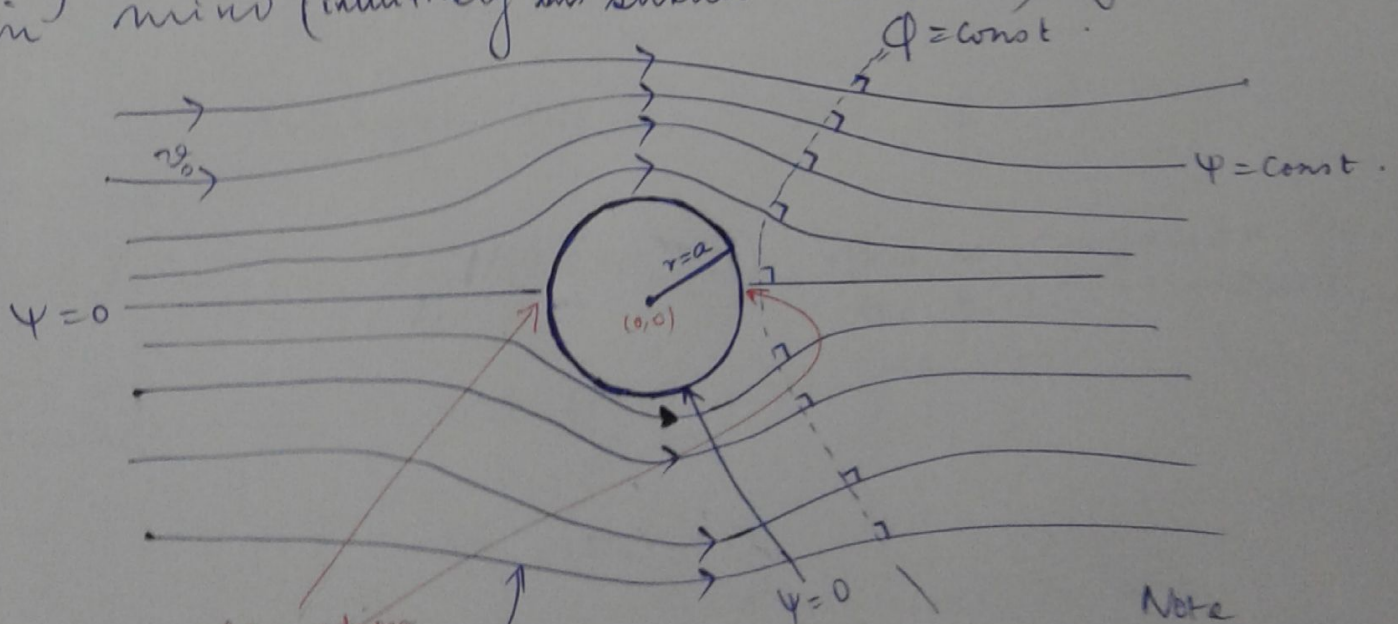 mind
φ = const.
v₀
ψ = const.
r=a
ψ = 0
(0,0)
ψ = 0
Note